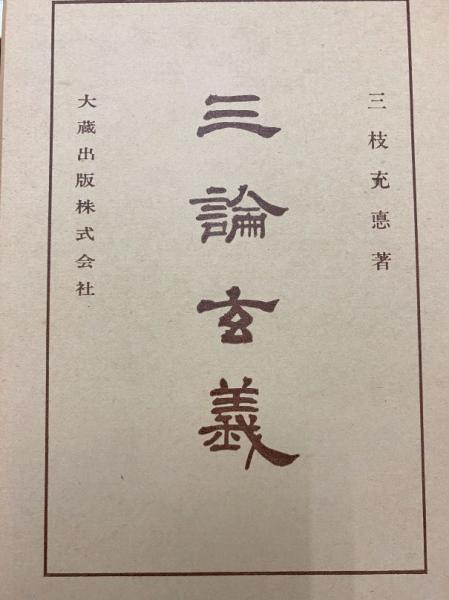 三枝充悳著
三論玄義
大蔵出版株式会社